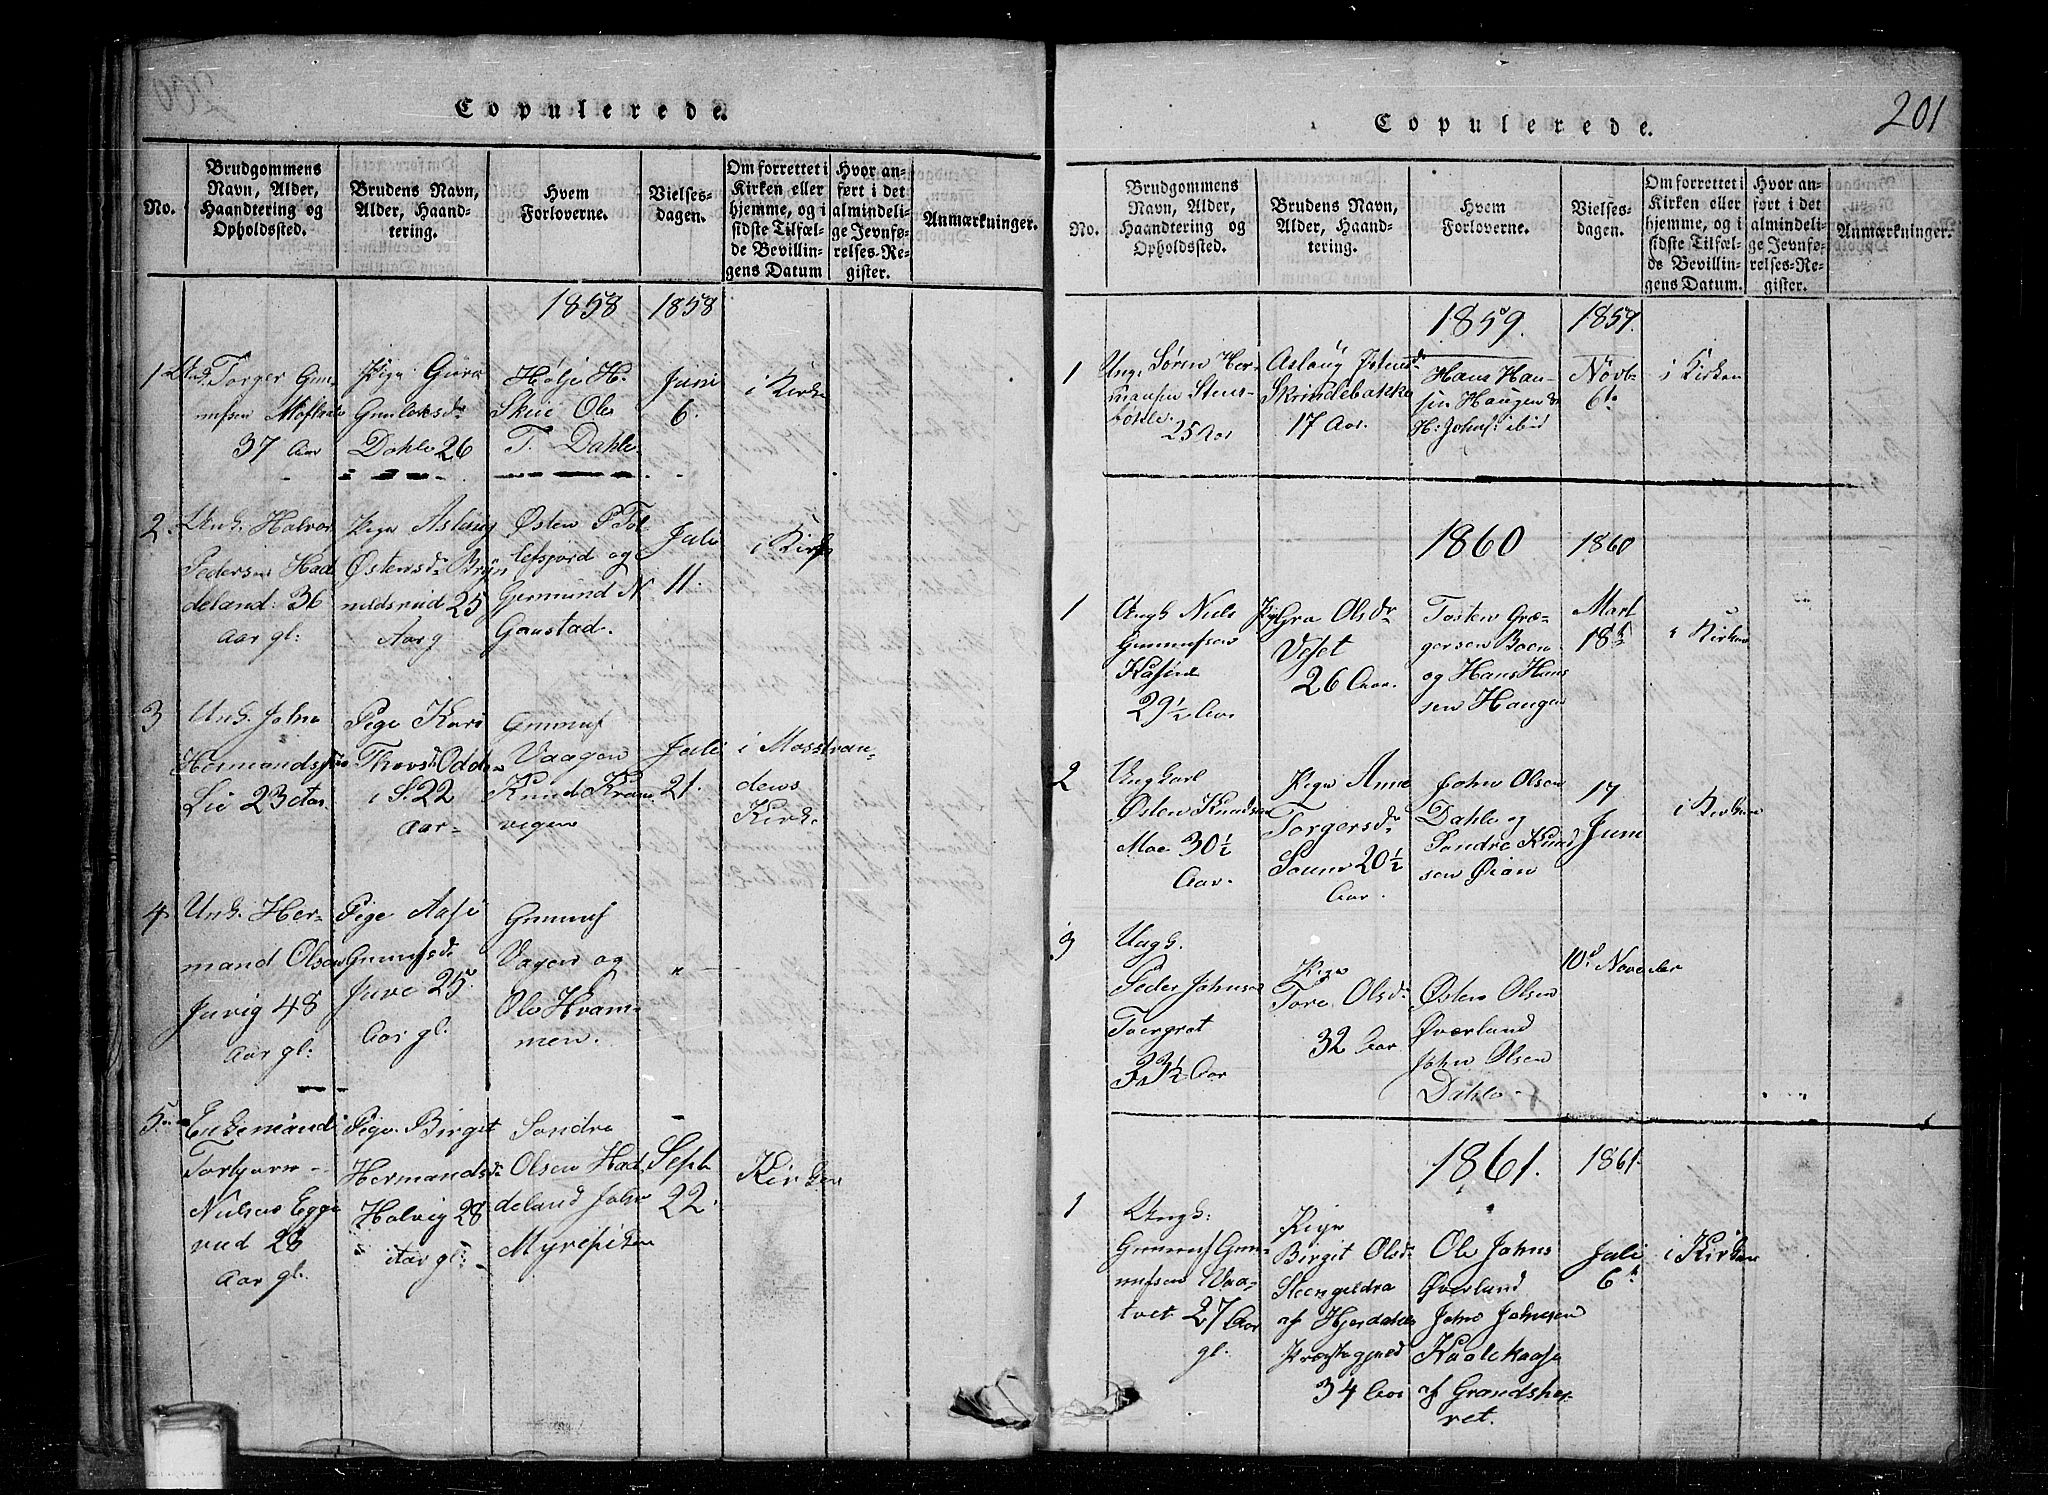 Copulerede.
No.
Brudgommens
Navn, Alder,
Haandtering og
Opholdssted.
Brudens Navn,
Alder, Haand-
tering.
Hvem
Forloverne.
Vielses-
dagen.
Om forrettet i
Kirken eller
hjemme, og i
sidste Tilfæl-
de Bevillin-
gens Datum
Hvor an-
ført i det
almindeli-
ge Jevnfø-
relses-Re-
gister.
Anmærkninger.
1858
1858
1
Ungk. Torger Gun-
37 Aar
Pige Guro
Gunleiksdr
Dahle 26
Holje H.
Skeie Ole
T. Dahle
Juni
6.
i Kirke
2.
Ungk. Halvor
Pedersen Had
deland 36
Aar gl:
Pige Aslaug
Østensdr Bryn
nildsrud 25
Aar g
Østen P Tol
lefsjord og
Germund N
Gaustad.
Juli
11.
i Kirke
3
Ungk. John
Hermandsen
Lie 23 Aar
Pige Kari
Thovsdr Odden
i S. 22
Aar
Gunnuf
Vaagen
Knud Kram
vigen
Juli
21.
i Mosstran-
dens
Kirke
4
Ungk. Her-
mand Olsen
Juvig 48
Aar gl:
Pige Aase
Gunnufsdr
Juve 25
Aar gl:
Gunnuf
Vagen og
Ole Kvam-
men.
"
5
Enkemand
Torbjørn
Nielsen Egge
rud 28
Aar gl.
Pige Birget
Hermandsdr
Halvig 28
Aar gl:
Sondre
Olsen Had
deland John
Sept
22.
Kirken
Copulerede.
201
No.
Brudgommens
Navn, Alder,
Haandtering og
Opholdssted.
Brudens Navn,
Alder, Haand-
tering.
Hvem
Forloverne.
Vielses-
dagen.
Om forrettet i
Kirken eller
hjemme, og i
sidste Tilfæl-
de Bevillin-
gens Datum.
Hvor an-
ført i det
almindeli-
ge Jevnfø-
relses-Re-
gister.
Anmærkninger.
1859.
1859.
1
Ung. Søren Her-
mansen Stens-
25 Aar
Aslaug Østensdr
Skrindebakke
17 Aar.
Hans Han-
sen Haugen &
H: Johns: ibid
Novb
6te
i Kirken
1860
1860
1
Ungk Niels
Gunnufsen
29½ Aar
Pige Gro Olsdr
Veset
26 Aar.
Tosten Græ-
gersen Boen
og Hans Han
sen Haugen
Mart
18
i Kirken
2
Ungkarl
Østen Knudsen
Moe 30½
Aar.
Pige Anne
Torgersdr
20½
Aar.
John Olsen
Dahle og
Sondre Knud
sen Øian
17
Juni
i Kirken
3
Ungk.
Peder Johnsen
33½ Aar
Pige
Tore Olsdr
32 Aar
Østen Olsen
Øverland
John Olsen
Dahle
10d November
1861.
1861.
1
Ungk:
Gunnuf Gun-
nufsen Vaa-
tvet 27 Aar
gl.
Pige
Birgit Olsdr
af Hjerdals
Præstegjeld
34 Aar
Ole Johns
Øverland
John Johnsen
af Grandsher-
ret.
Juli
6
i Kirken